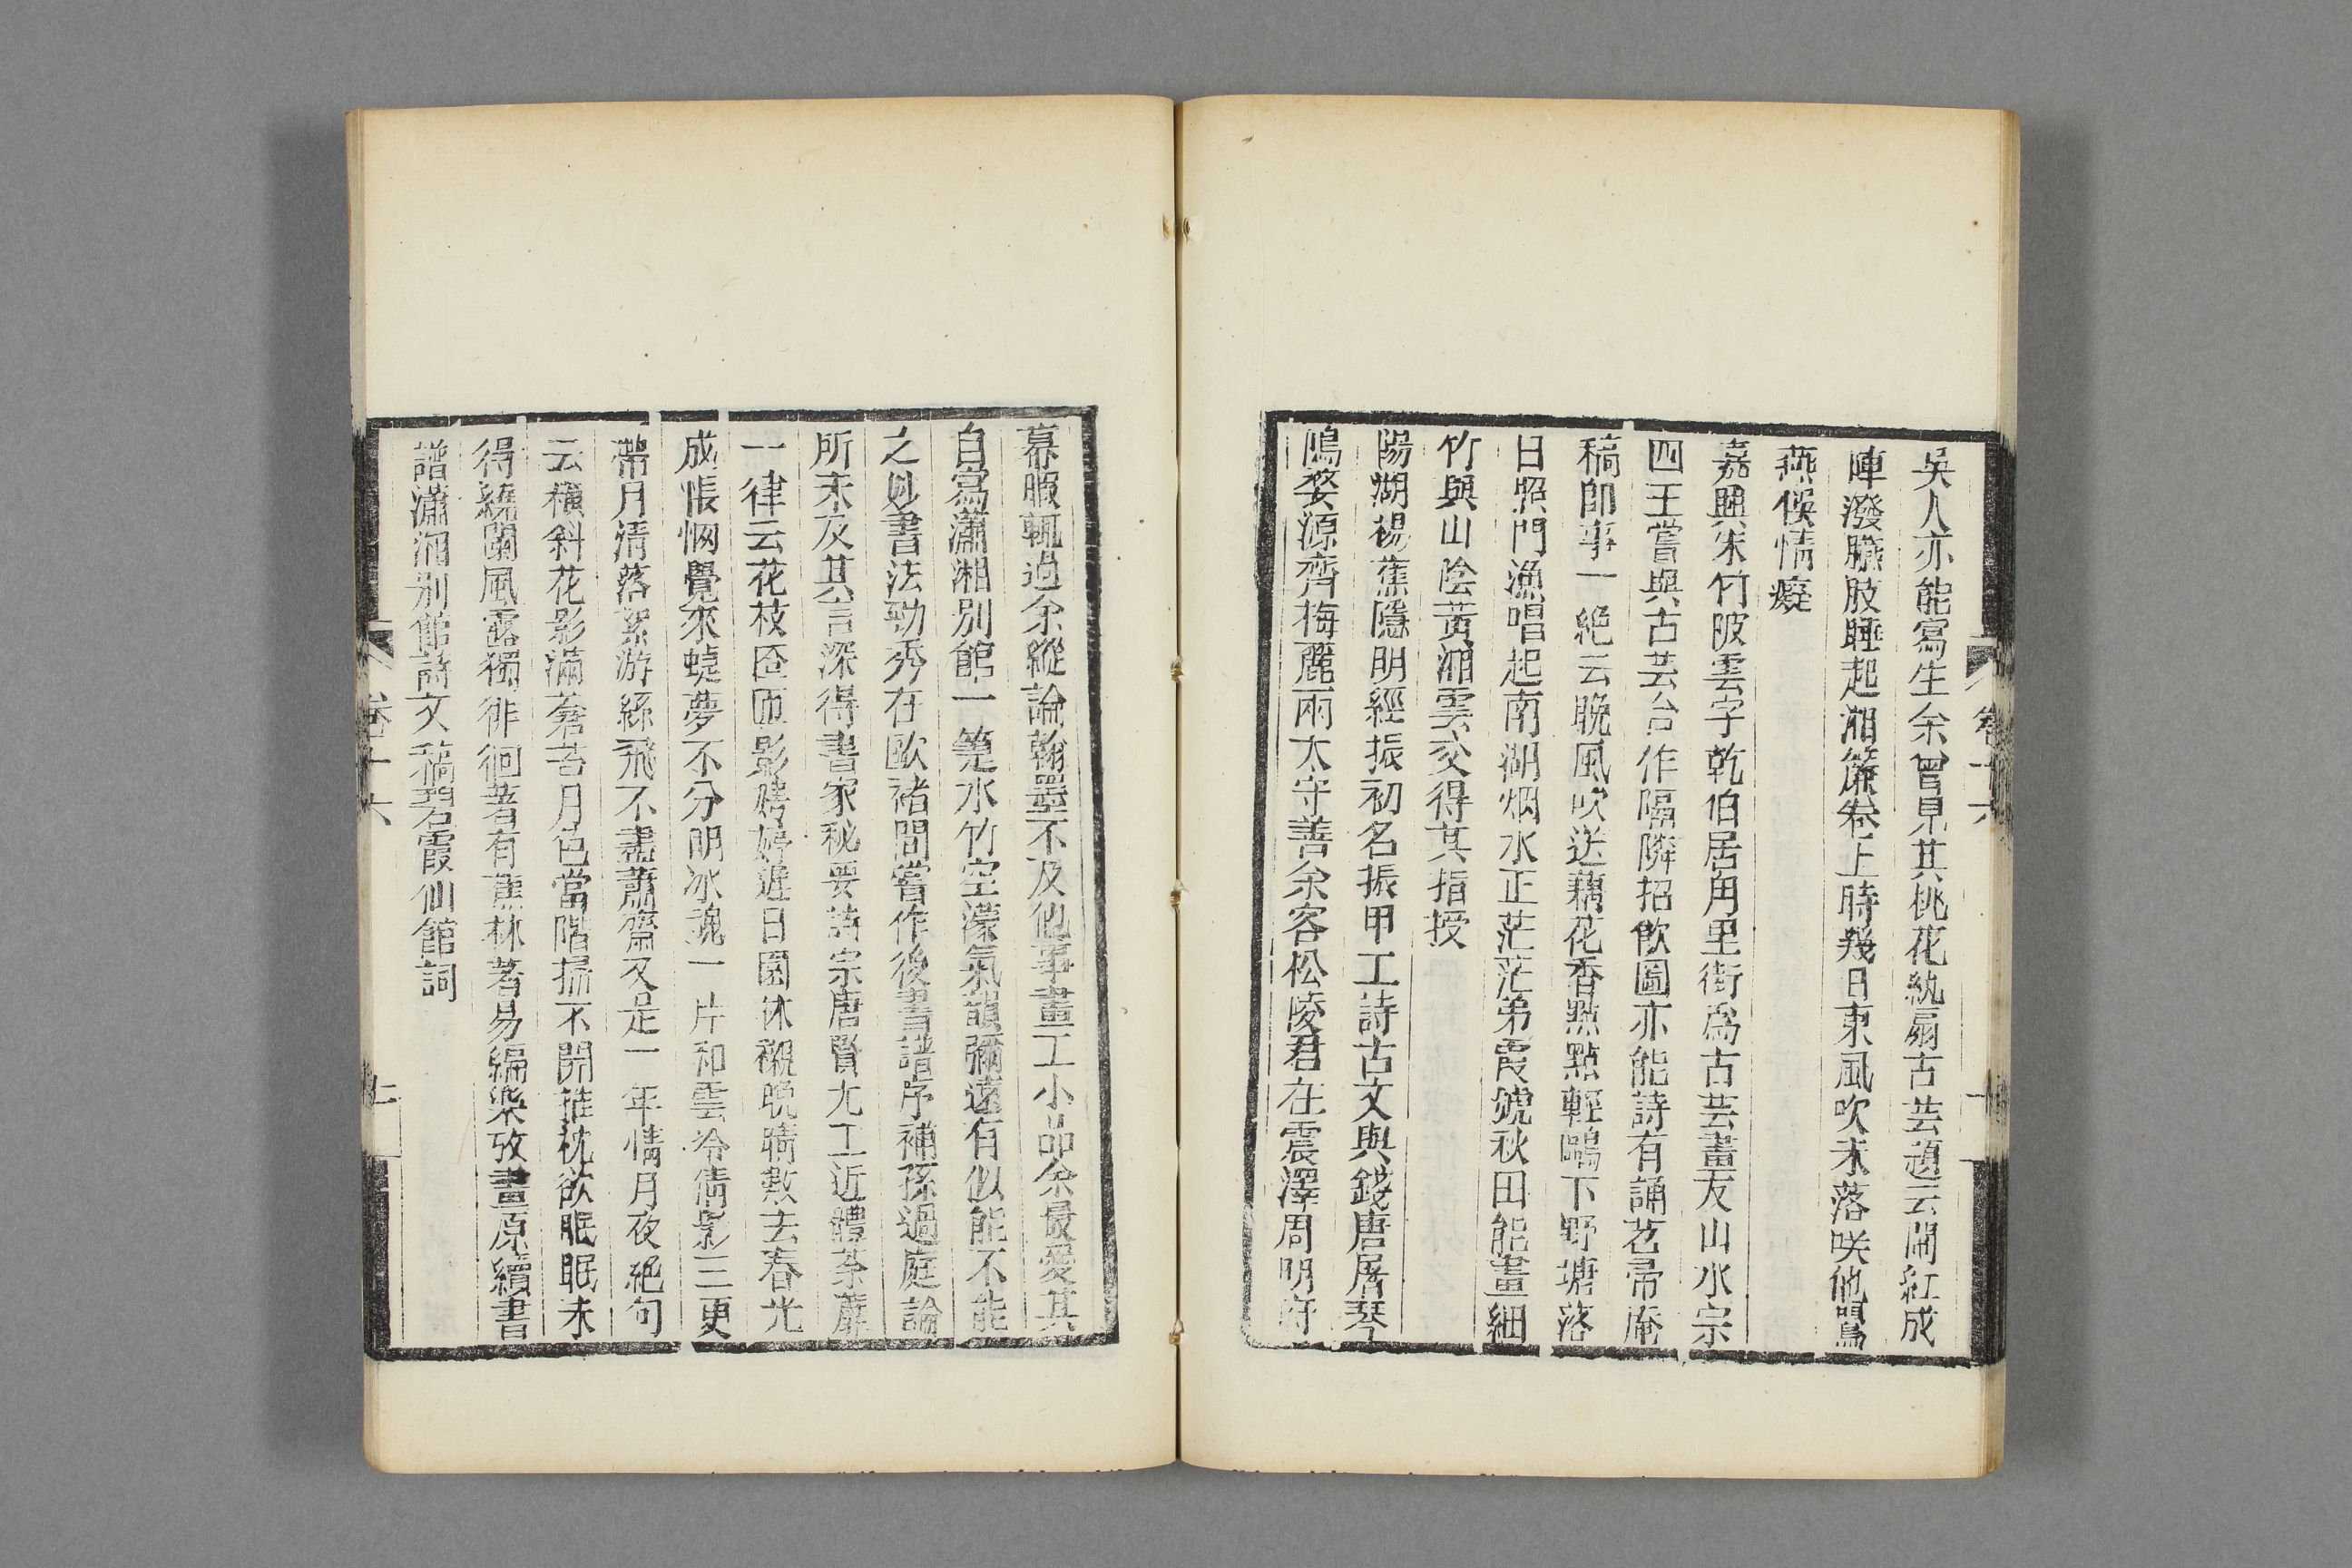 吳人亦能寫生余曾見其桃花紈扇古芸題云鬧紅成
陣潑臙肢睡起湘簾卷上時幾日東風吹未落咲他鶯
燕倐情癡
嘉興朱竹陂雲字乾伯居角里街爲古芸畫友山水宗
四王嘗與古芸合作隔隣招飲圖亦能詩有誦茗帚庵
稿卽事一絶云晚風吹送藕花香點點輕鷗下野塘落
日照門漁唱起南湖烟水正茫茫弟霞號秋田能畫細
竹與山陰黃湘雲交得其指授
陽湖楊蕉隱明經振初名振甲工詩古文與錢唐屠琴
鳴婺源齊梅麓兩太守善余客松陵君在震澤周明府
幕暇輒過余縱論翰墨不及他事畫工小品余最愛其
自寫瀟湘別館一筆水竹空濛氣韻彌遠有似能不能
之妙書法勁秀在歐褚間嘗作後書譜序補孫過庭論
所未及其言深得書家秘要詩宗唐賢尤工近體荼蘼
一律云花枝匼匝影娉婷遲日園林襯晚晴數去春光
成悵惘覺來蜨夢不分明冰魂一片和雲冷倩影三更
帶月淸落絮游絲飛不盡蕭齋又是一年情月夜絶句
云橫斜花影滿蒼苔月色當階掃不開推枕欲眠眠未
得繞闌風露獨徘徊著有蕉林著易編樂攷畫原續書
譜瀟湘別館詩文稿碧霞仙館詞
卷十六
卷十六